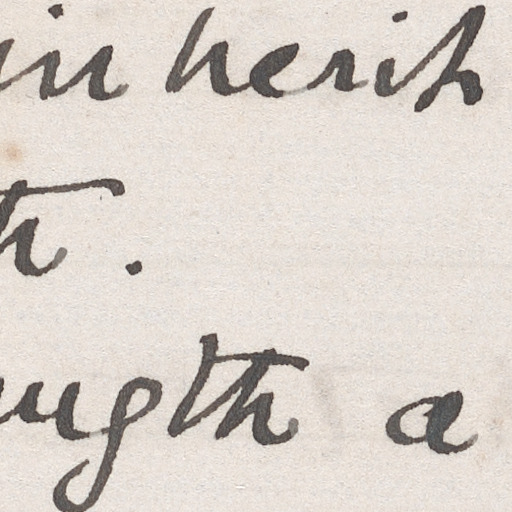 inherit
th.
ngth a